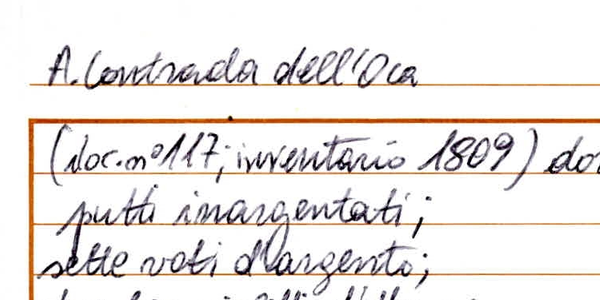 A. Contrada dell'Oca
(doc. n° 117; inventario 1809)
putti inargentati;
sette voti d'argento;